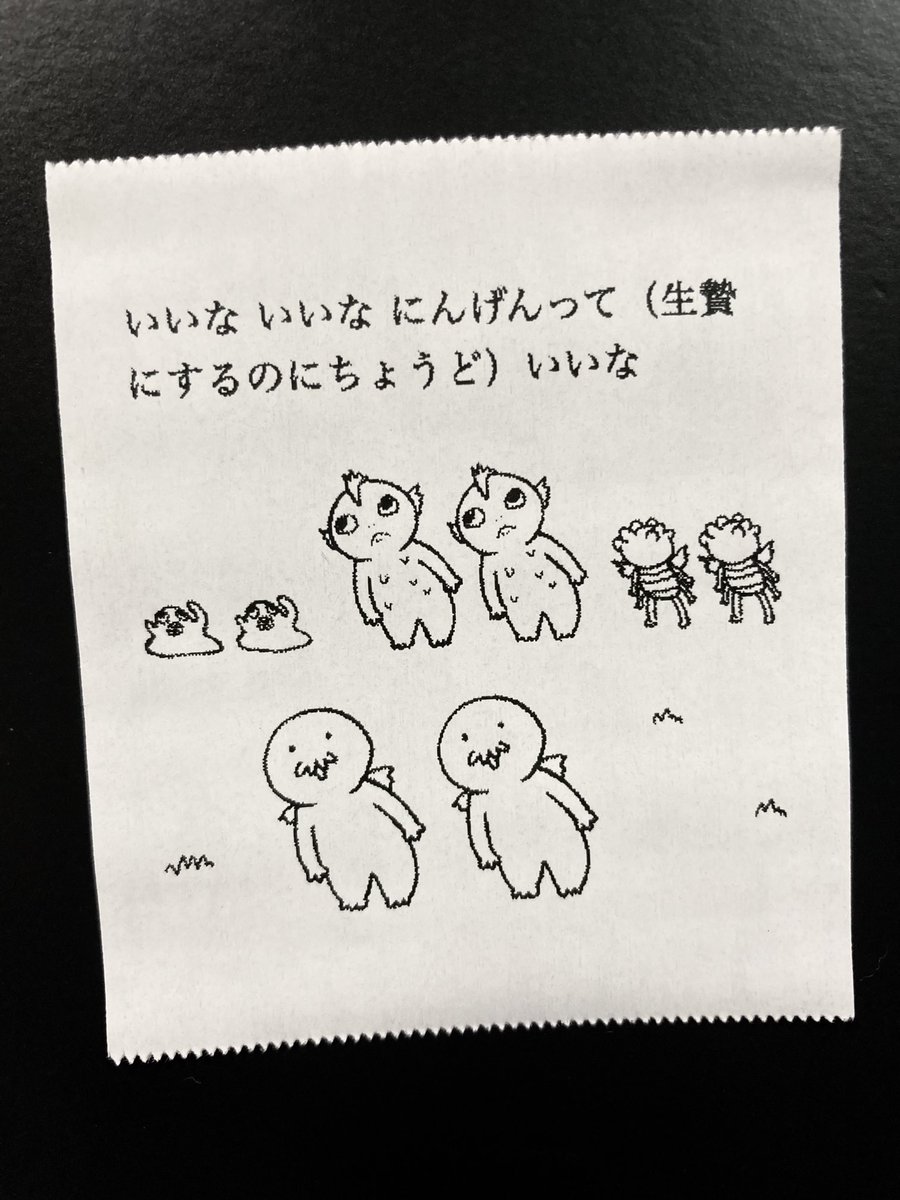 いいな いいな にんげんって（生贄
にするのにちょうど）いいな